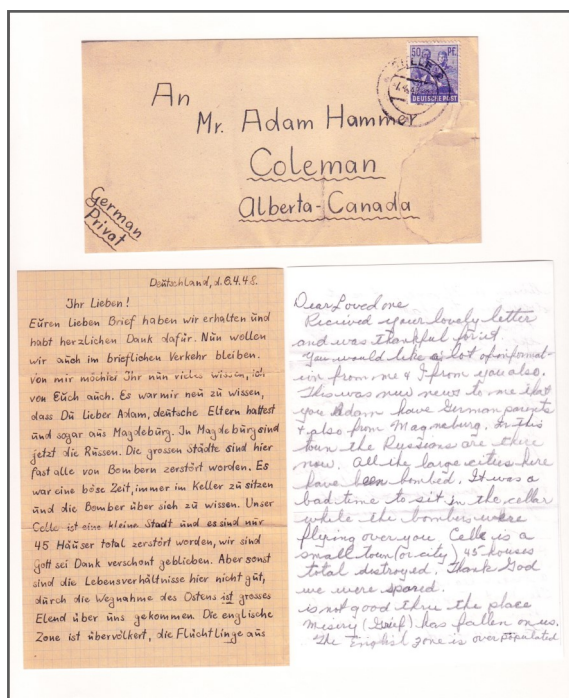 50 PF.
DEUTSCHE POST
An
Mr. Adam Hammer
Coleman
Alberta-Canada
German
Privat
Deutschland, d. 8.4.48.
Ihr Lieben!
Euren Lieben Brief haben wir erhalten und
habt herzlichen Dank dafür. Nun wollen
wir auch im brieflichen Verkehr bleiben.
Von mir möchtet Ihr nun vieles wissen, ich
von Euch auch. Es war mir neu zu wissen,
dass Du lieber Adam, deutsche Eltern hattest
und sogar aus Magdeburg. In Magdeburg sind
jetzt die Russen. Die grossen Städte sind hier
fast alle von Bombern zerstört worden. Es
war eine böse Zeit, immer im Keller zu sitzen
und die Bomber über sich zu wissen. Unser
Celle ist eine kleine Stadt und es sind nur
45 Häuser total zerstört worden, wir sind
Gott sei Dank verschont geblieben. Aber sonst
sind die Lebensverhältnisse hier nicht gut,
durch die Wegnahme des Ostens ist grosses
Elend über uns gekommen. Die englische
Zone ist übervölkert, die Flüchtlinge aus
Dear Loved one
Recieved your lovely letter
and was thankful for it.
You would like a lot of informat-
ion from me & I from you also.
This was new news to me that
you Adam have German parents
& also from Magneburg. In this
town the Russians are there
now. All the large cities here
have been bombed. It was a
bad time to sit in the cellar
while the bombers were
flying over you. Celle is a
small town (or city) 45 houses
total distroyed. Thank God
we were spared.
is not good thru the place
Misery (Grief) has fallen on us.
The English zone is over populated